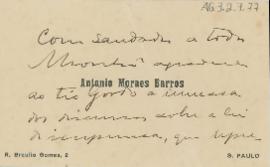 AG 3.2.7.77
Com saudades a todos
Antonio Moraes Barros
ao tio Gordo a remessa
dos discursos sobre a lei
de imprensa, que
R. Braulio Gomes, 2 S. PAULO